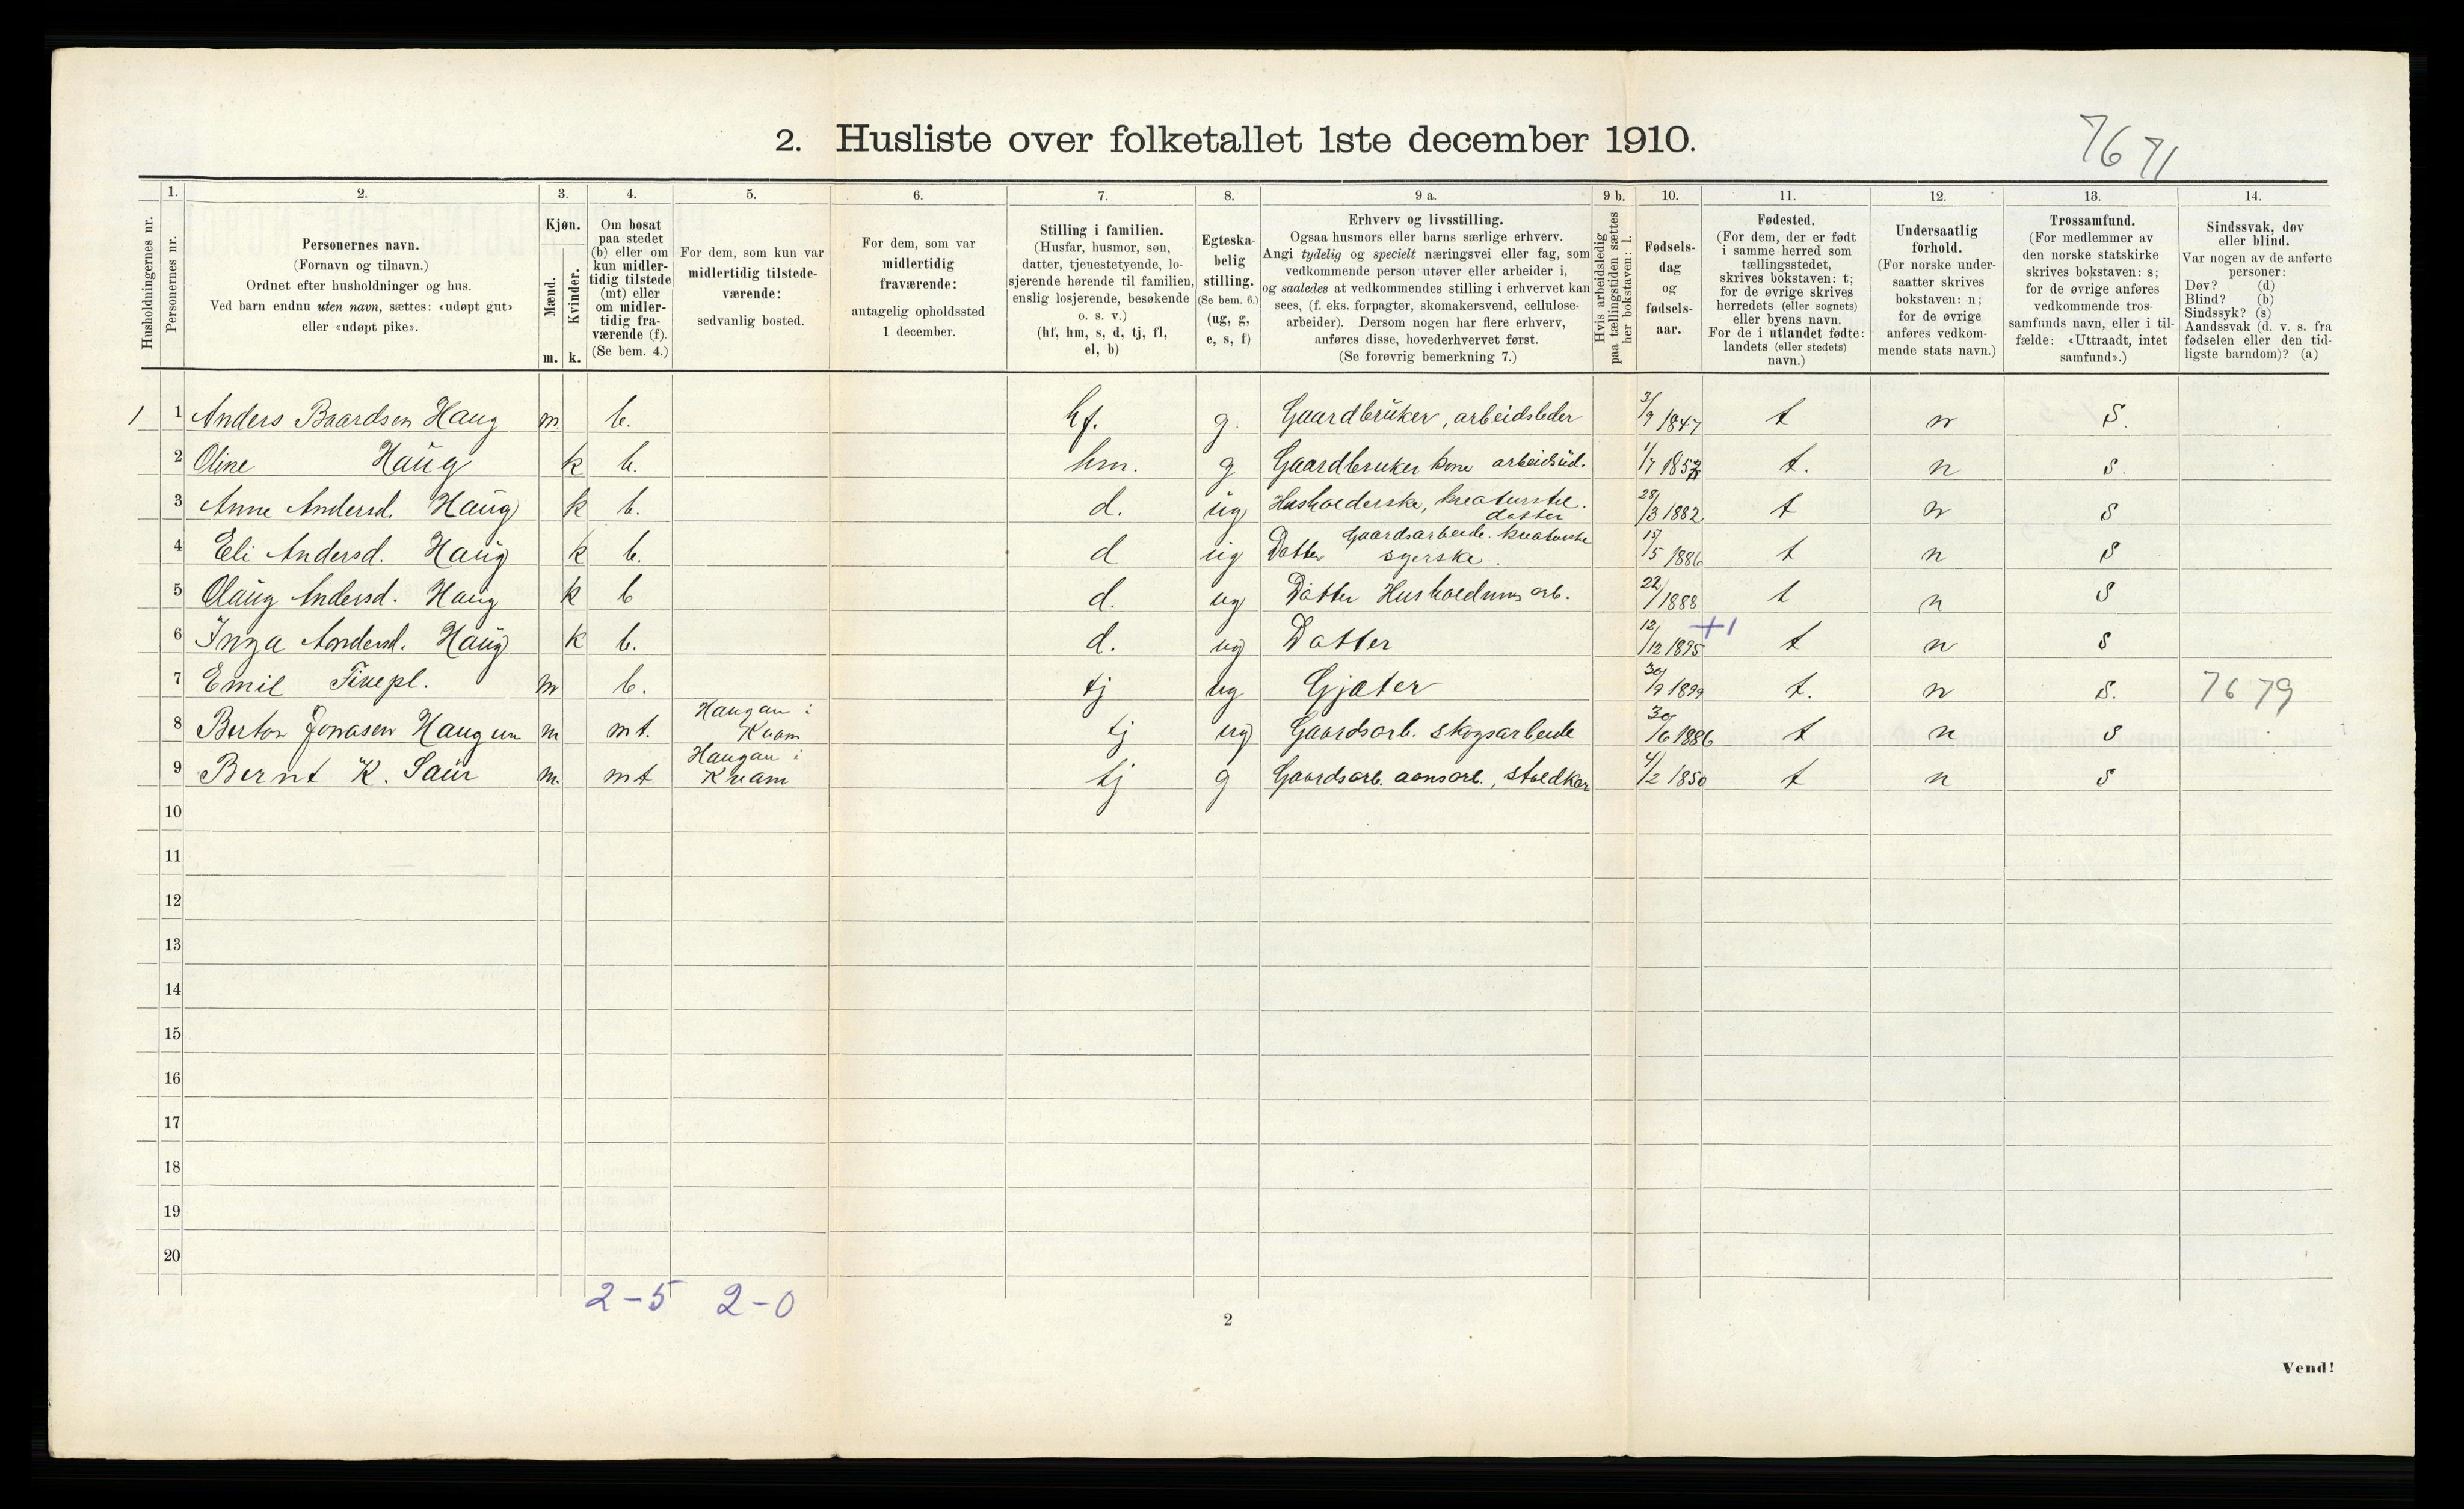 2. Husliste over folketallet 1ste december 1910.
7671
Husholdningernes nr.
1.
Personernes nr.
2.
Personernes navn.
(Fornavn og tilnavn.)
Ordnet efter husholdninger og hus.
Ved barn endnu uten navn, sættes: «udøpt gut»
eller «udøpt pike».
3.
Kjøn.
Mænd.
Kvinder.
m. k.
4.
Om bosat
paa stedet
(b) eller om
kun midler-
tidig tilstede
(mt) eller
om midler-
tidig fra-
værende (f).
(Se bem. 4.)
5.
For dem, som kun var
midlertidig tilstede-
værende:
sedvanlig bosted.
6.
For dem, som var
midlertidig
fraværende:
antagelig opholdssted
1 december.
7.
Stilling i familien.
(Husfar, husmor, søn,
datter, tjenestetyende, lo-
sjerende hørende til familien,
enslig losjerende, besøkende
o. s. v.)
(hf, hm, s, d, tj, fl,
el, b)
8.
Egteska-
belig
stilling.
(Se bem. 6.)
(ug, g,
e, s, f)
9 a.
Erhverv og livsstilling.
Ogsaa husmors eller barns særlige erhverv.
Angi tydelig og specielt næringsvei eller fag, som
vedkommende person utøver eller arbeider i,
og saaledes at vedkommendes stilling i erhvervet kan
sees, (f. eks. forpagter, skomakersvend, cellulose-
arbeider). Dersom nogen har flere erhverv,
anføres disse, hovederhvervet først.
(Se forøvrig bemerkning 7.)
9 b.
Hvis arbeidsledig
paa tællingstiden sættes
her bokstaven: l.
10.
Fødsels-
dag
og
fødsels-
aar.
11.
Fødested.
(For dem, der er født
i samme herred som
tællingsstedet,
skrives bokstaven: t;
for de øvrige skrives
herredets (eller sognets)
eller byens navn.
For de i utlandet fødte:
landets (eller stedets)
navn.)
12.
Undersaatlig
forhold.
(For norske under-
saatter skrives
bokstaven: n;
for de øvrige
anføres vedkom-
mende stats navn.)
13.
Trossamfund.
(For medlemmer av
den norske statskirke
skrives bokstaven: s;
for de øvrige anføres
vedkommende tros-
samfunds navn, eller i til-
fælde: «Uttraadt, intet
samfund».)
14.
Sindssvak, døv
eller blind.
Var nogen av de anførte
personer:
Døv? (d)
Blind? (b)
Sindssyk? (s)
Aandssvak (d. v. s. fra
fødselen eller den tid-
ligste barndom)? (a)
1 1 Anders Baardsen Haug m b. hf. g. Gaardbruker, arbeidsleder 3/9 1847 t n S.
2 Oline Haug k b. hm. g Gaardbruker kone arbeidsud. 1/7 t. n s.
3 Anne Andersd. Haug k b. d. ug Husholderske, kreaturstel. datter 28/3 1882 t n S
4 Eli Andersd. Haug k b. d ug Datter Gaardsarbeide. syerske. 15/5 1886 t n S
5 Olaug Andersd. Haug k b d. ug Datter arb. 22/1 1888 t n S
6 Inga Andersd. Haug k b. d. ug Datter 12/12 1895 +1 t n S
7 Emil m b. tj ug Gjæter 30/9 1899 t. n S. 7679
8 Jonasen Haugan m mt. Haugan i Kvam tj ug Gaardsarb. skogsarbeide 30/6 1886 t n S
9 Bernt K. Saur m. mt Haugan i Kvam tj g Gaardsarb. 4/2 1850 t n S
10
11
12
13
14
15
16
17
18
19
20
2-5 2-0
2
Vend!